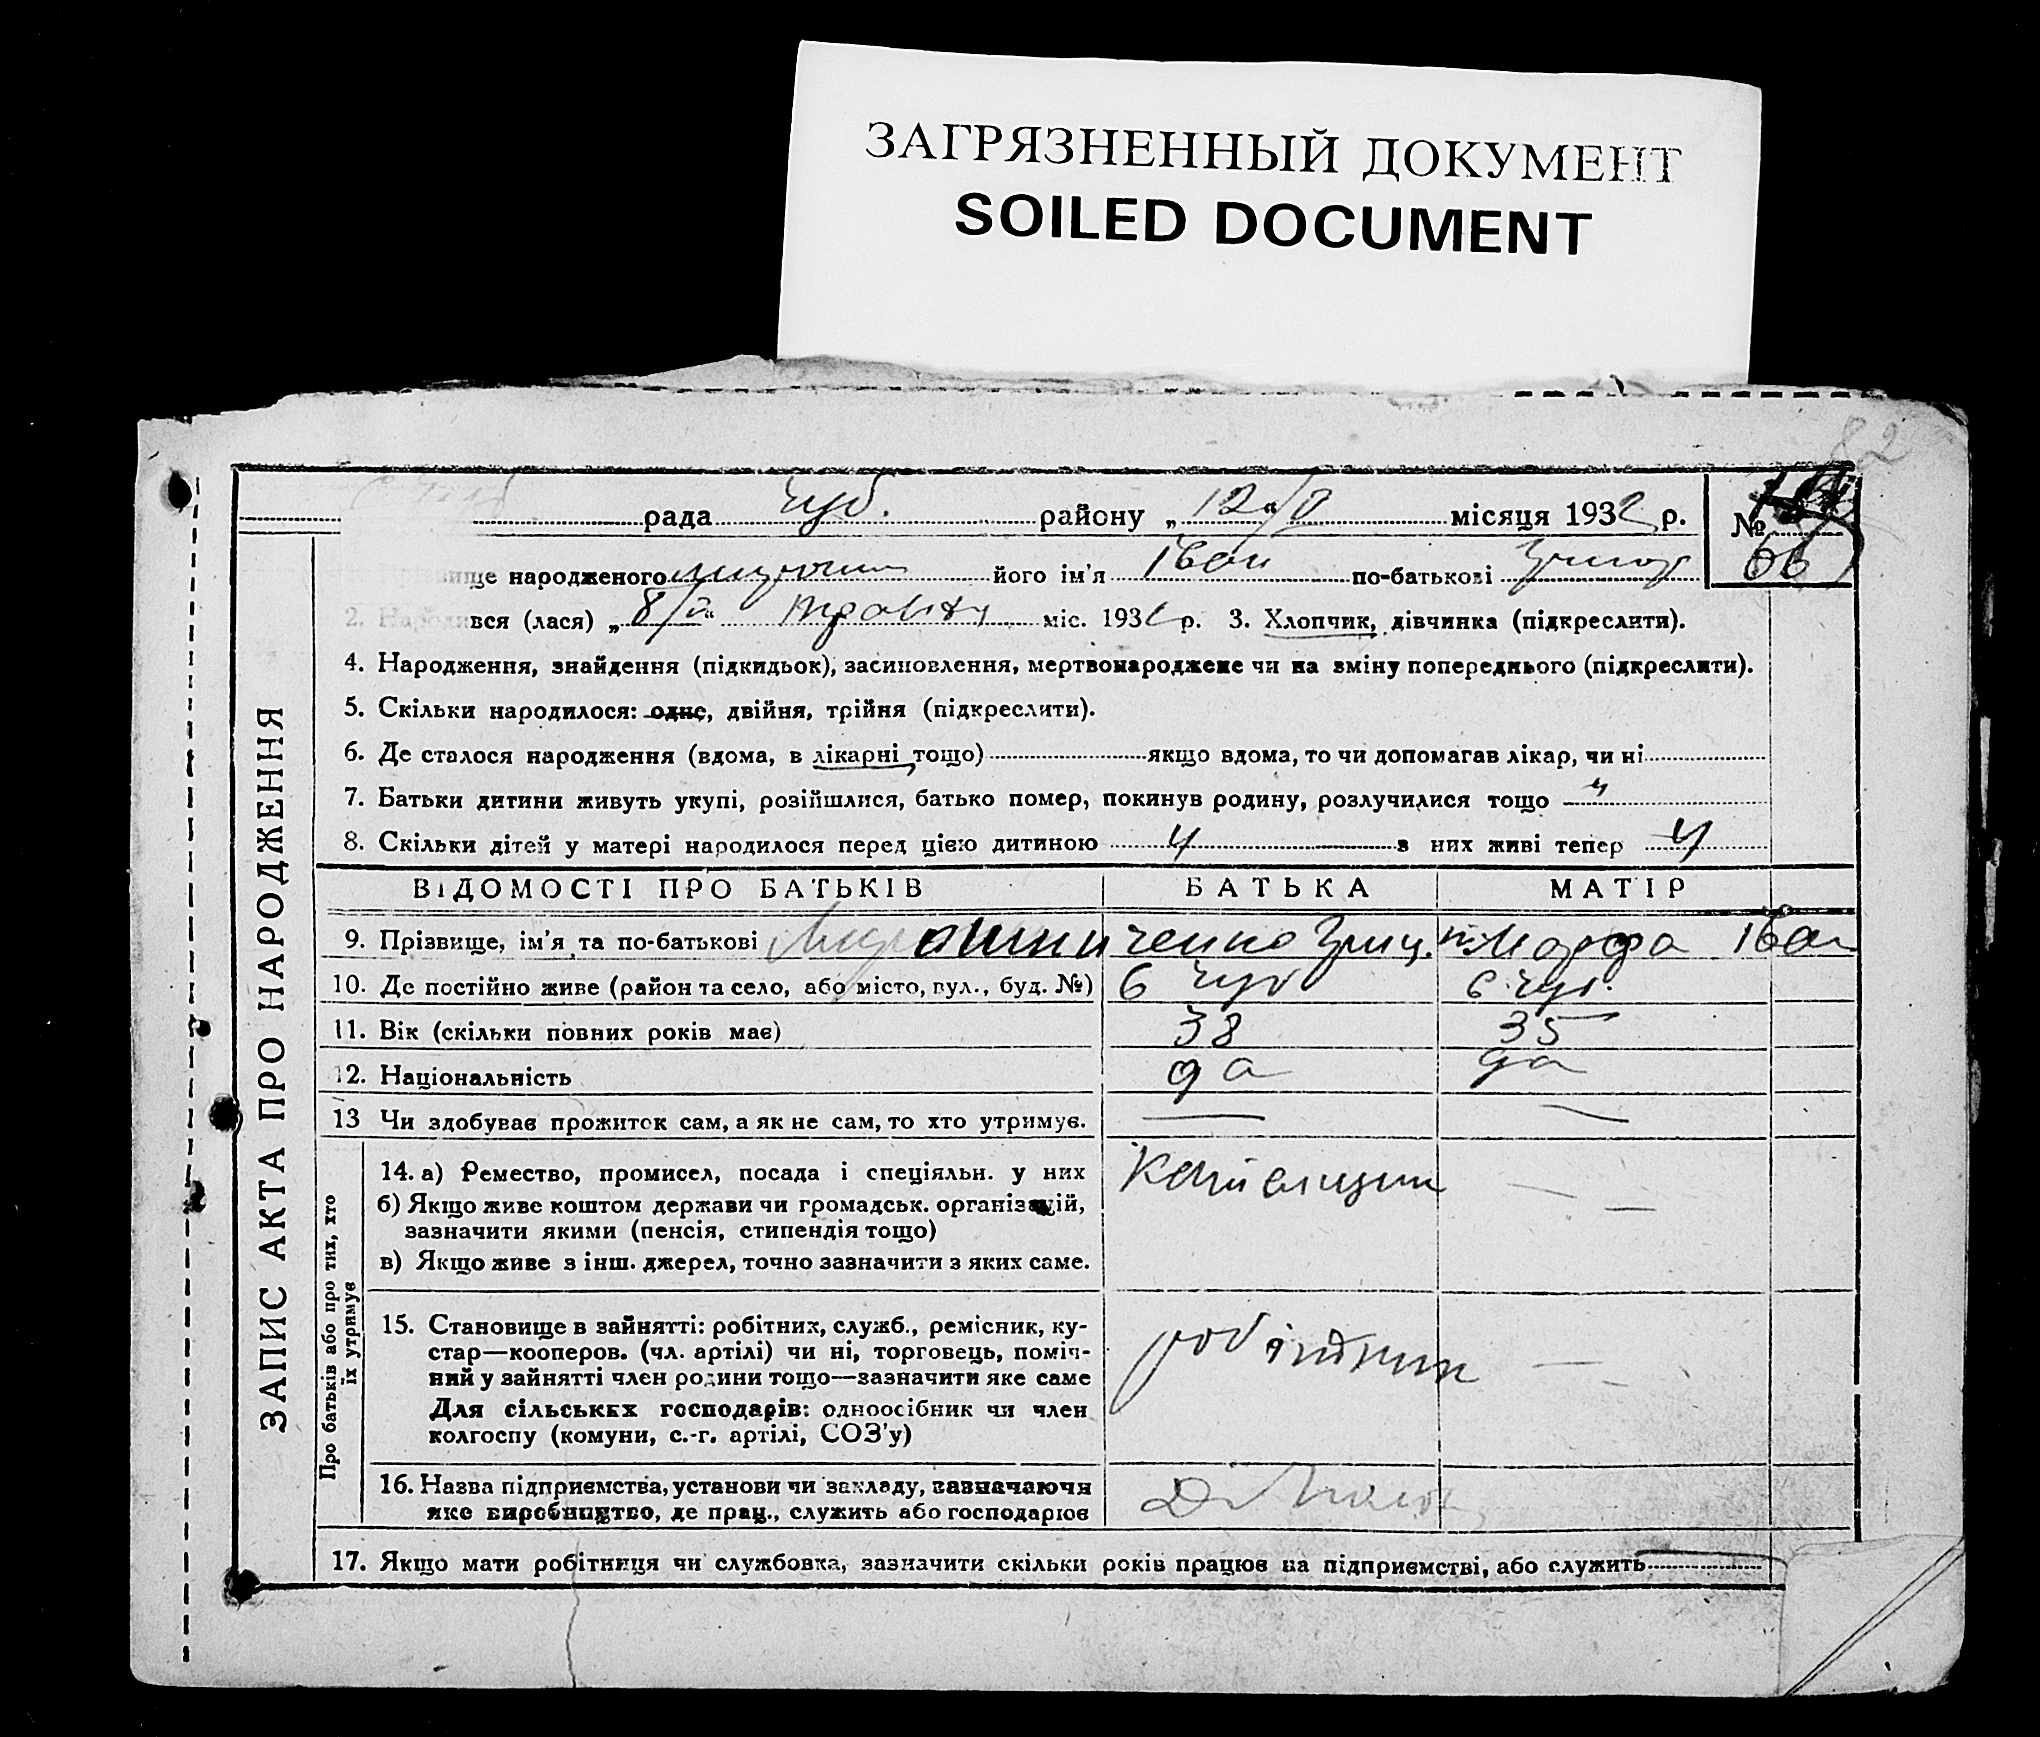 ЗАГРЯЗНЕННЫЙ ДОКУМЕНТ
SOILED DOCUMENT
82
рада Чуб. району „12/V місяця 1932 р. №
66
ще народженого його ім'я Іван по-батькові
2. Народився (лася) „8/а“ міс. 193 р. 3. Хлопчик, дівчинка (підкреслити).
4. Народження, знайдення (підкидьок), засиновлення, мертвонароджене чи на зміну попереднього (підкреслити).
5. Скільки народилося: одне, двійня, трійня (підкреслити).
6. Де сталося народження (вдома, в лікарні тощо) якщо вдома, то чи допомагав лікар, чи ні
7. Батьки дитини живуть укупі, розійшлися, батько помер, покинув родину, розлучилися тощо
8. Скільки дітей у матері народилося перед цією дитиною 4 з них живі тепер 4
ВІДОМОСТІ ПРО БАТЬКІВ БАТЬКА МАТІР
9. Прізвище, ім'я та по-батькові Мирошниченко Григ. Марфа Іван
10. Де постійно живе (район та село, або місто, вул., буд. №) с Чуб с. Чуб.
11. Вік (скільки повних років має) 38 35
12. Національність
13 Чи здобуває прожиток сам, а як не сам, то хто утримує.
14. а) Ремество, промисел, посада і спеціяльн. у них
б) Якщо живе коштом держави чи громадськ. організацій,
зазначити якими (пенсія, стипендія тощо)
в) Якщо живе з інш. джерел, точно зазначити з яких саме.
15. Становище в зайнятті: робітник, служб., ремісник, ку-
стар—кооперов. (чл. артілі) чи ні, торговець, поміч-
ний у зайнятті член родини тощо—зазначити яке саме
робітник
Для сільських господарів: одноосібник чи член
колгоспу (комуни, с.-г. артілі, СОЗ'у)
16. Назва підприємства, установи чи закладу, зазначаючи
яке виробництво, де прац., служить або господарює
17. Якщо мати робітниця чи службовка, зазначити скільки років працює на підприємстві, або служить
ЗАПИС АКТА ПРО НАРОДЖЕННЯ
Про батьків або про тих, хто
їх утримує